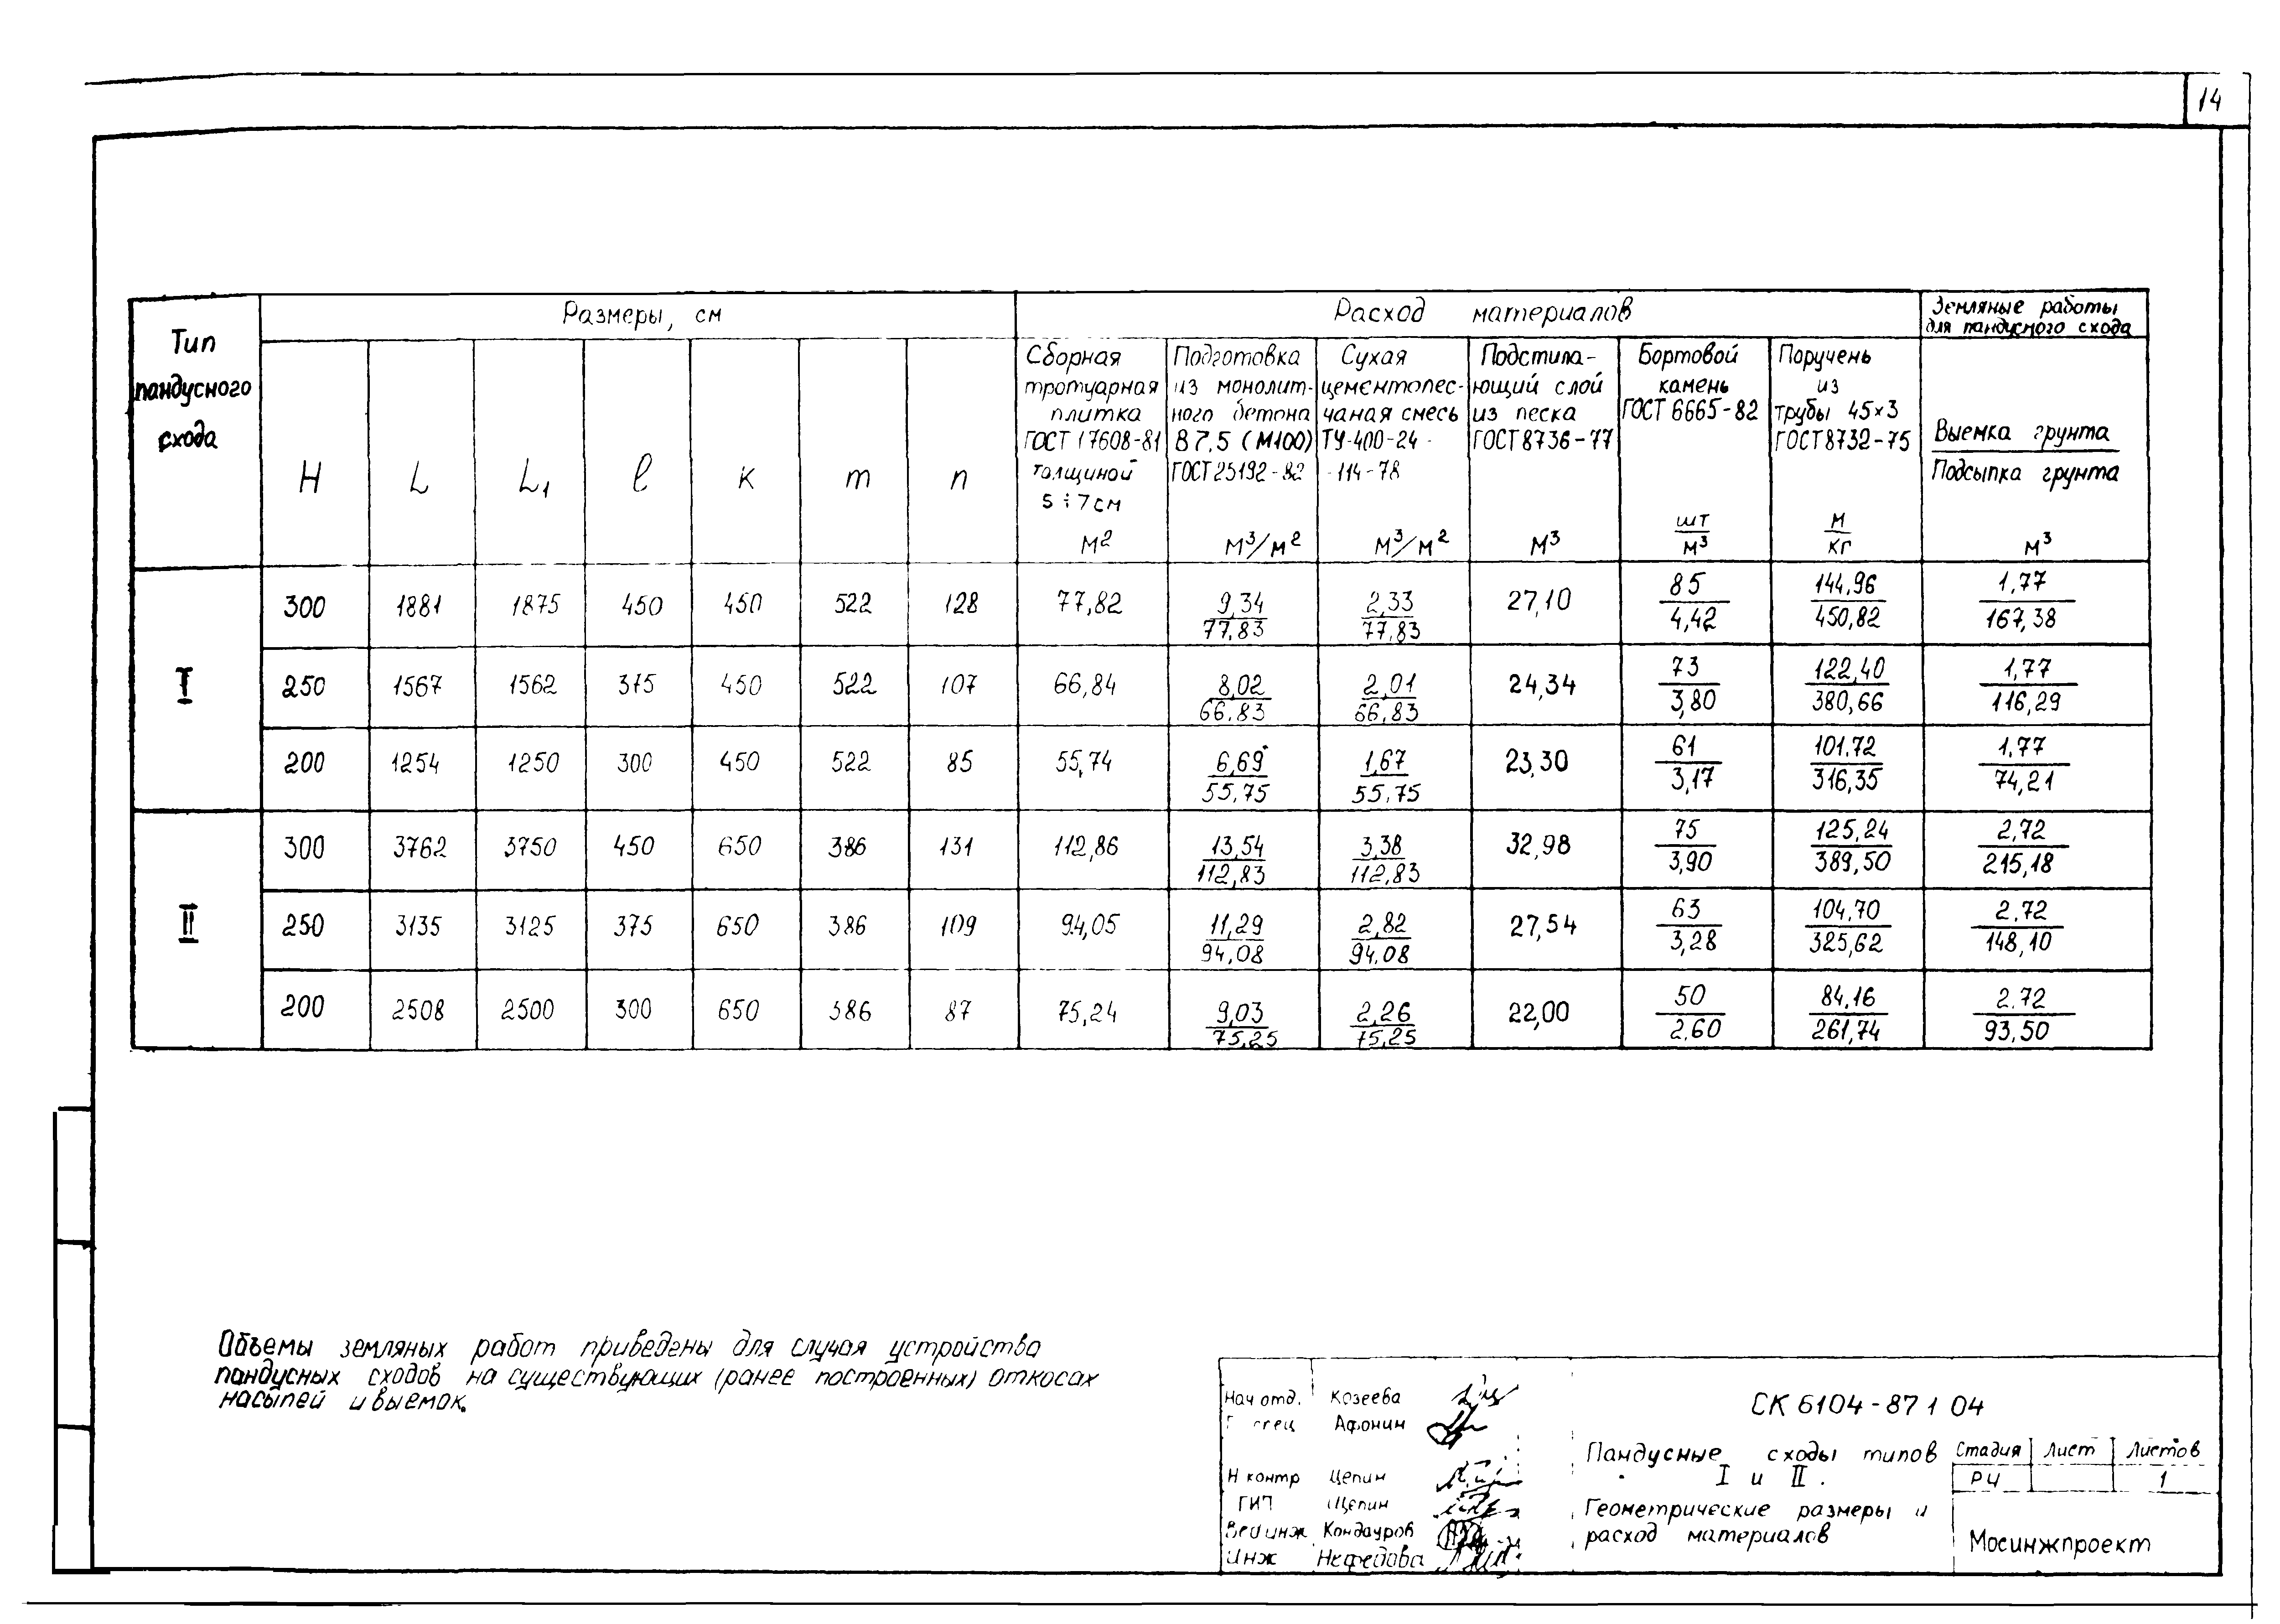 14
Тип пандусного схода
Размеры, см
Расход материалов
Земляные работы для пандусного схода
H L L1 ℓ к m n
Сборная тротуарная плитка ГОСТ 17608-81 толщиной 5÷7см м2
Подготовка из монолитного бетона В 7,5 (М100) ГОСТ 25192-82 м3/м2
Сухая цементопесчаная смесь ТУ-400-24-114-78 м3/м2
Подстилающий слой из песка ГОСТ 8736-77 м3
Бортовой камень ГОСТ 6665-82 шт/м3
Поручень из трубы 45×3 ГОСТ 8732-75 м/кг
Выемка грунта/Подсыпка грунта м3
I
300 1881 1875 450 450 522 128 77,82 9,34/77,83 2,33/77,83 27,10 85/4,42 144,96/450,82 1,77/167,38
250 1567 1562 375 450 522 107 66,84 8,02/66,83 2,01/66,83 24,34 73/3,80 122,40/380,66 1,77/116,29
200 1254 1250 300 450 522 85 55,74 6,69/55,75 1,67/55,75 23,30 61/3,17 101,72/316,35 1,77/74,21
II
300 3762 3750 450 650 386 131 112,86 13,54/112,83 3,38/112,83 32,98 75/3,90 125,24/389,50 2,72/215,18
250 3135 3125 375 650 386 109 94,05 11,29/94,08 2,82/94,08 27,54 63/3,28 104,70/325,62 2,72/148,10
200 2508 2500 300 650 386 87 75,24 9,03/75,25 2,26/75,25 22,00 50/2,60 84,16/261,74 2,72/93,50
Объемы земляных работ приведены для случая устройства
пандусных сходов на существующих (ранее построенных) откосах
насыпей и выемок.
Нач отд. Козеева
спец Афонин
Н контр Щепин
ГИП Щепин
Вед инж Кондауров
Инж Нефедова
СК 6104-87 1 04
Пандусные сходы типов
I и II.
Геометрические размеры и
расход материалов
Стадия Лист Листов
РЧ 1
Мосинжпроект